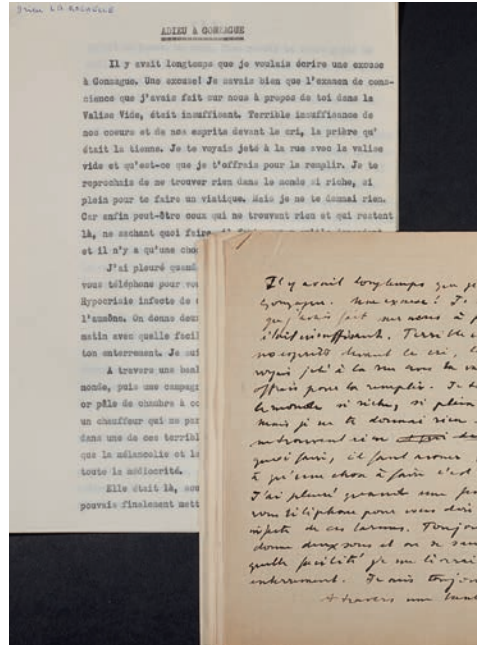 Drieu LA ROCHELLE
ADIEU À GONZAGUE
Il y avait longtemps que je voulais écrire une excuse
à Gonzague. Une excuse! Je savais bien que l'examen de cons-
cience que j'avais fait sur nous à propos de toi dans la
Valise Vide, était insuffisant. Terrible insuffisance de
nos coeurs et de nos esprits devant le cri, la prière qu'
était la tienne. Je te voyais jeté à la rue avec la valise
vide et qu'est-ce que je t'offrais pour la remplir. Je te
reprochais de ne trouver rien dans le monde si riche, si
plein pour te faire un viatique. Mais je ne te donnai rien.
Car enfin peut-être ceux qui ne trouvent rien et qui restent
là, ne sachant quoi faire,
et il n'y a qu'une cho
J'ai pleuré quand
vous téléphone pour vou
Hypocrisie infecte de
l'aumône. On donne deux
matin avec quelle facil
ton enterrement. Je sui
A travers une banl
monde, puis une campagn
or pâle de chambre à co
un chauffeur qui ne par
dans une de ces terribl
que la mélancolie et la
toute la médiocrité.
Elle était là, sou
pouvais finalement mett
Il y avait longtemps que je
Gonzague. Une excuse! Je
que j'avais fait sur nous à p
était insuffisant. Terrible
nos esprits devant le cri, l
voyais jeté à la rue avec la va
offrais pour la remplir. Je t
le monde si riche, si plein
mais je ne te donnai rien.
ne trouvent rien
quoi faire, il faut avouer
à qu'une chose à faire c'est
J'ai pleuré quand une fe
vous téléphone pour vous dire
infecte de ces larmes. Toujou
donne deux sous et on se sau
quelle facilité je me lèverai
enterrement. Je suis toujou
A travers une banl